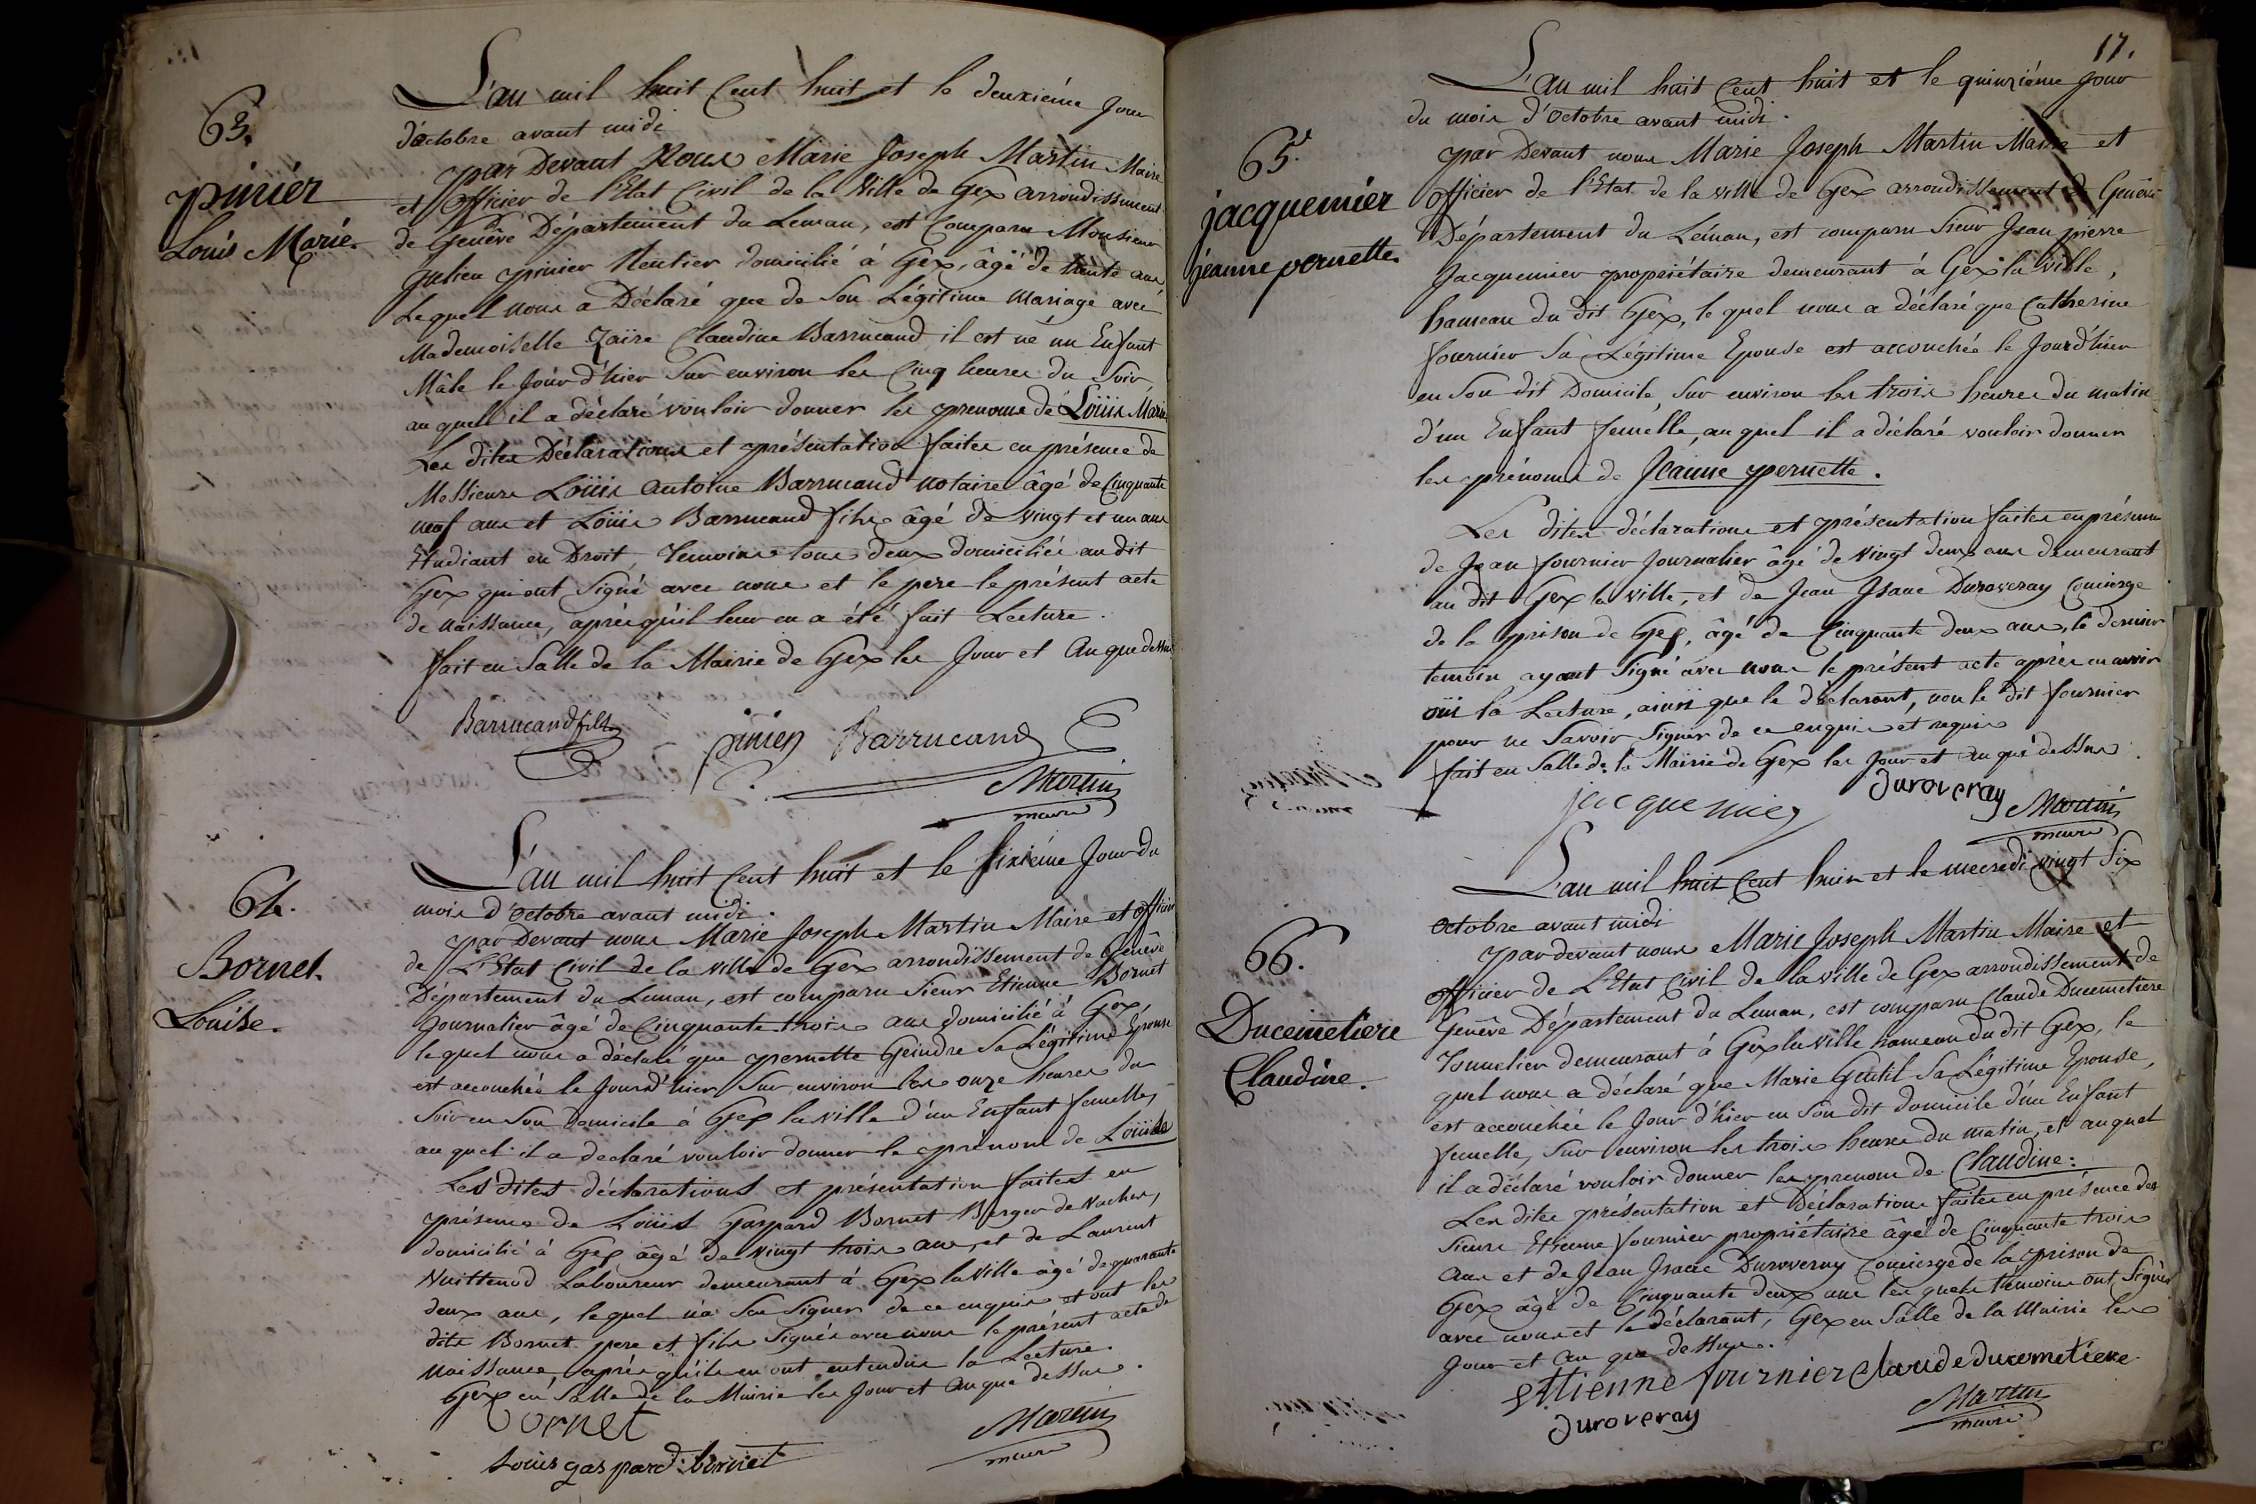 63.
pinier
Louis Marie.
L'an mil huit Cent huit et le deuxiéme Jour
d'octobre avant midi
par Devant Nous Marie Joseph Martin Maire
et officier de l'Etat Civil de la Ville de Gex arrondissement
de Genêve Département du Leman, est Comparu Monsieur
Julien pinier Rentier domicilié à Gex, âgé de trente ans
Lequel nous a Déclaré que de Son Légitime Mariage avec
Mademoiselle Zaïre Claudine Barrucand il est né un Enfant
Mâle le Jour d'hier Sur environ les Cinq heures du Soir
au quel il a déclaré vouloir donner les prenoms de Loüis Marie
Les dites Déclarations et présentation faites en présence de
Messieurs Loüis Antoine Barrucand notaire âgé de Cinquante
neuf ans et Loüis Barrucand fils âgé de vingt et un ans
Etudiant en Droit, Temoins tous deux domiciliés au dit
Gex qui ont Signé avec nous et le pere le présent acte
de Naissance, après qu'il leur en a été fait Lecture.
fait en Salle de la Mairie de Gex les Jour et An que dessus
Barrucand fils pinier Barrucand
Martin
maire
64.
Bornet.
Louise.
L'an mil huit Cent huit et le Sixiéme Jour du
mois d'octobre avant midi.
par Devant nous Marie Joseph Martin Maire et officier
de L'Etat Civil de la ville de Gex arrondissement de Genêve
Département du Leman, est comparu Sieur Etienne Bornet
Journalier âgé de Cinquante trois ans domicilié à Gex,
lequel nous a déclaré que pernette Geindre Sa Légitime Epouse
est accouchée le Jourd'hier Sur environ les onze heures du
Soir en Son Domicile à Gex la ville d'un Enfant femelle,
au quel il a declaré vouloir donner le prénom de Loüise
Les dites déclarations et présentation faites en
présence de Loüis Gaspard Bornet Berger de Vaches,
domicilié à Gex âgé de vingt trois ans, et de Laurent
Vuittenod Laboureur demeurant à Gex la Ville âgé de quarante
deux ans, lequel n'a Sçu Signer de ce enquis et ont les
dits Bornet pere et fils Signés avec nous le présent acte de
Naissance, après qu'ils en ont entendu la Lecture.
Gex en Salle de la Mairie les Jour et an que dessus.
Bornet
Martin
Louis gaspard bornet
maire
17.
65.
jacquemier
jeanne pernette.
L'an mil huit Cent huit et le quinziéme Jour
du mois d'octobre avant midi.
par Devant nous Marie Joseph Martin Maire et
officier de l'Etat de la ville de Gex arrondissement de Genêve
Département du Léman, est comparu Sieur Jean pierre
Jacquemier propriétaire demeurant à Gex la Ville,
hameau du dit Gex, le quel nous a déclaré que Catherine
fournier Sa Légitime Epouse est accouchée le Jourd'hier
en Son dit Domicile, Sur environ les trois heures du matin
d'un Enfant femelle, au quel il a déclaré vouloir donner
les prénoms de Jeanne pernette.
Les dites déclarations et présentation faites en présence
de Jean fournier Journalier âgé de Vingt deux ans demeurant
au dit Gex la ville, et de Jean Isaac Duroveray Concierge
de la prison de Gex, âgé de Cinquante deux ans, le dernier
temoin ayant Signé avec nous le présent acte après en avoir
oüi la Lecture, ainsi que le déclarant, non le dit fournier
pour ne Savoir Signer de ce enquis et requis
fait en Salle de la Mairie de Gex les Jour et an que dessus.
jacquemier Duroveray Martin
maire
66.
Ducimetiere
Claudine.
L'an mil huit Cent huit et le mecredi vingt Six
octobre avant midi
par devant nous Marie Joseph Martin Maire et
officier de L'Etat Civil de la ville de Gex arrondissement de
Genêve Département du Leman, est comparu Claude Ducimetiere
Tonnelier demeurant à Gex la ville hameau du dit Gex, le
quel nous a déclaré que Marie Gentil Sa Légitime Epouse,
est accouchée le Jour d'hier en Son dit domicile d'un Enfant
femelle, Sur environ les trois heures du matin, et au quel
il a déclaré vouloir donner les prenom de Claudine:
Les dites présentation et Déclarations faites en présence des
Sieurs Etienne fournier propriétaire âgé de Cinquante trois
ans et de Jean Isaac Duroveray Concierge de la prison de
Gex âgé de Cinquante deux ans les quels temoins ont Signés
avec nous et le déclarant, Gex en Salle de la Mairie les
Jour et an que dessus.
Ettienne fournier Claude ducemetiere
Duroveray
Martin
maire